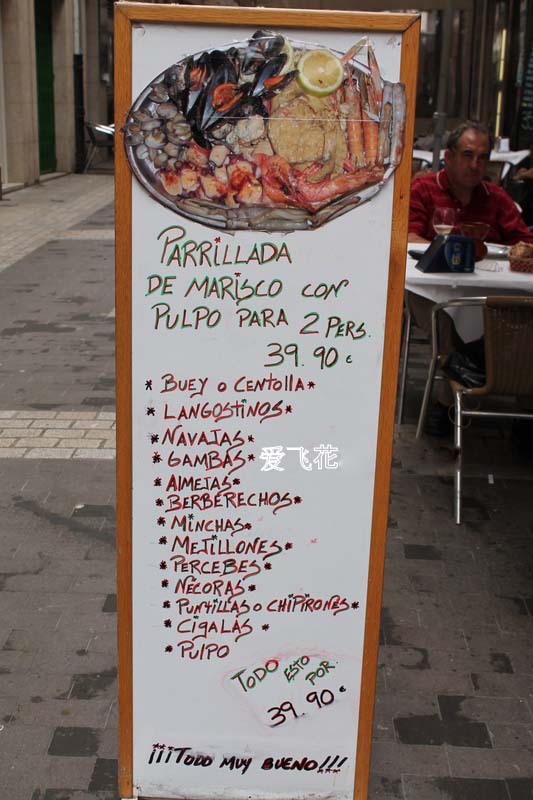 PARRILLADA
DE MARISCO CON
PULPO PARA 2 PERS.
39.90 €
* BUEY O CENTOLLA *
* LANGOSTINOS *
* NAVAJAS *
* GAMBAS *
爱飞花
* ALMEJAS *
* BERBERECHOS *
* MINCHAS *
* MEJILLONES *
* PERCEBES *
* NÉCORAS *
* PUNTILLAS O CHIPIRONES *
* CIGALAS *
* PULPO
TODO ESTO POR.
39.90 €
¡¡¡TODO MUY BUENO!!!